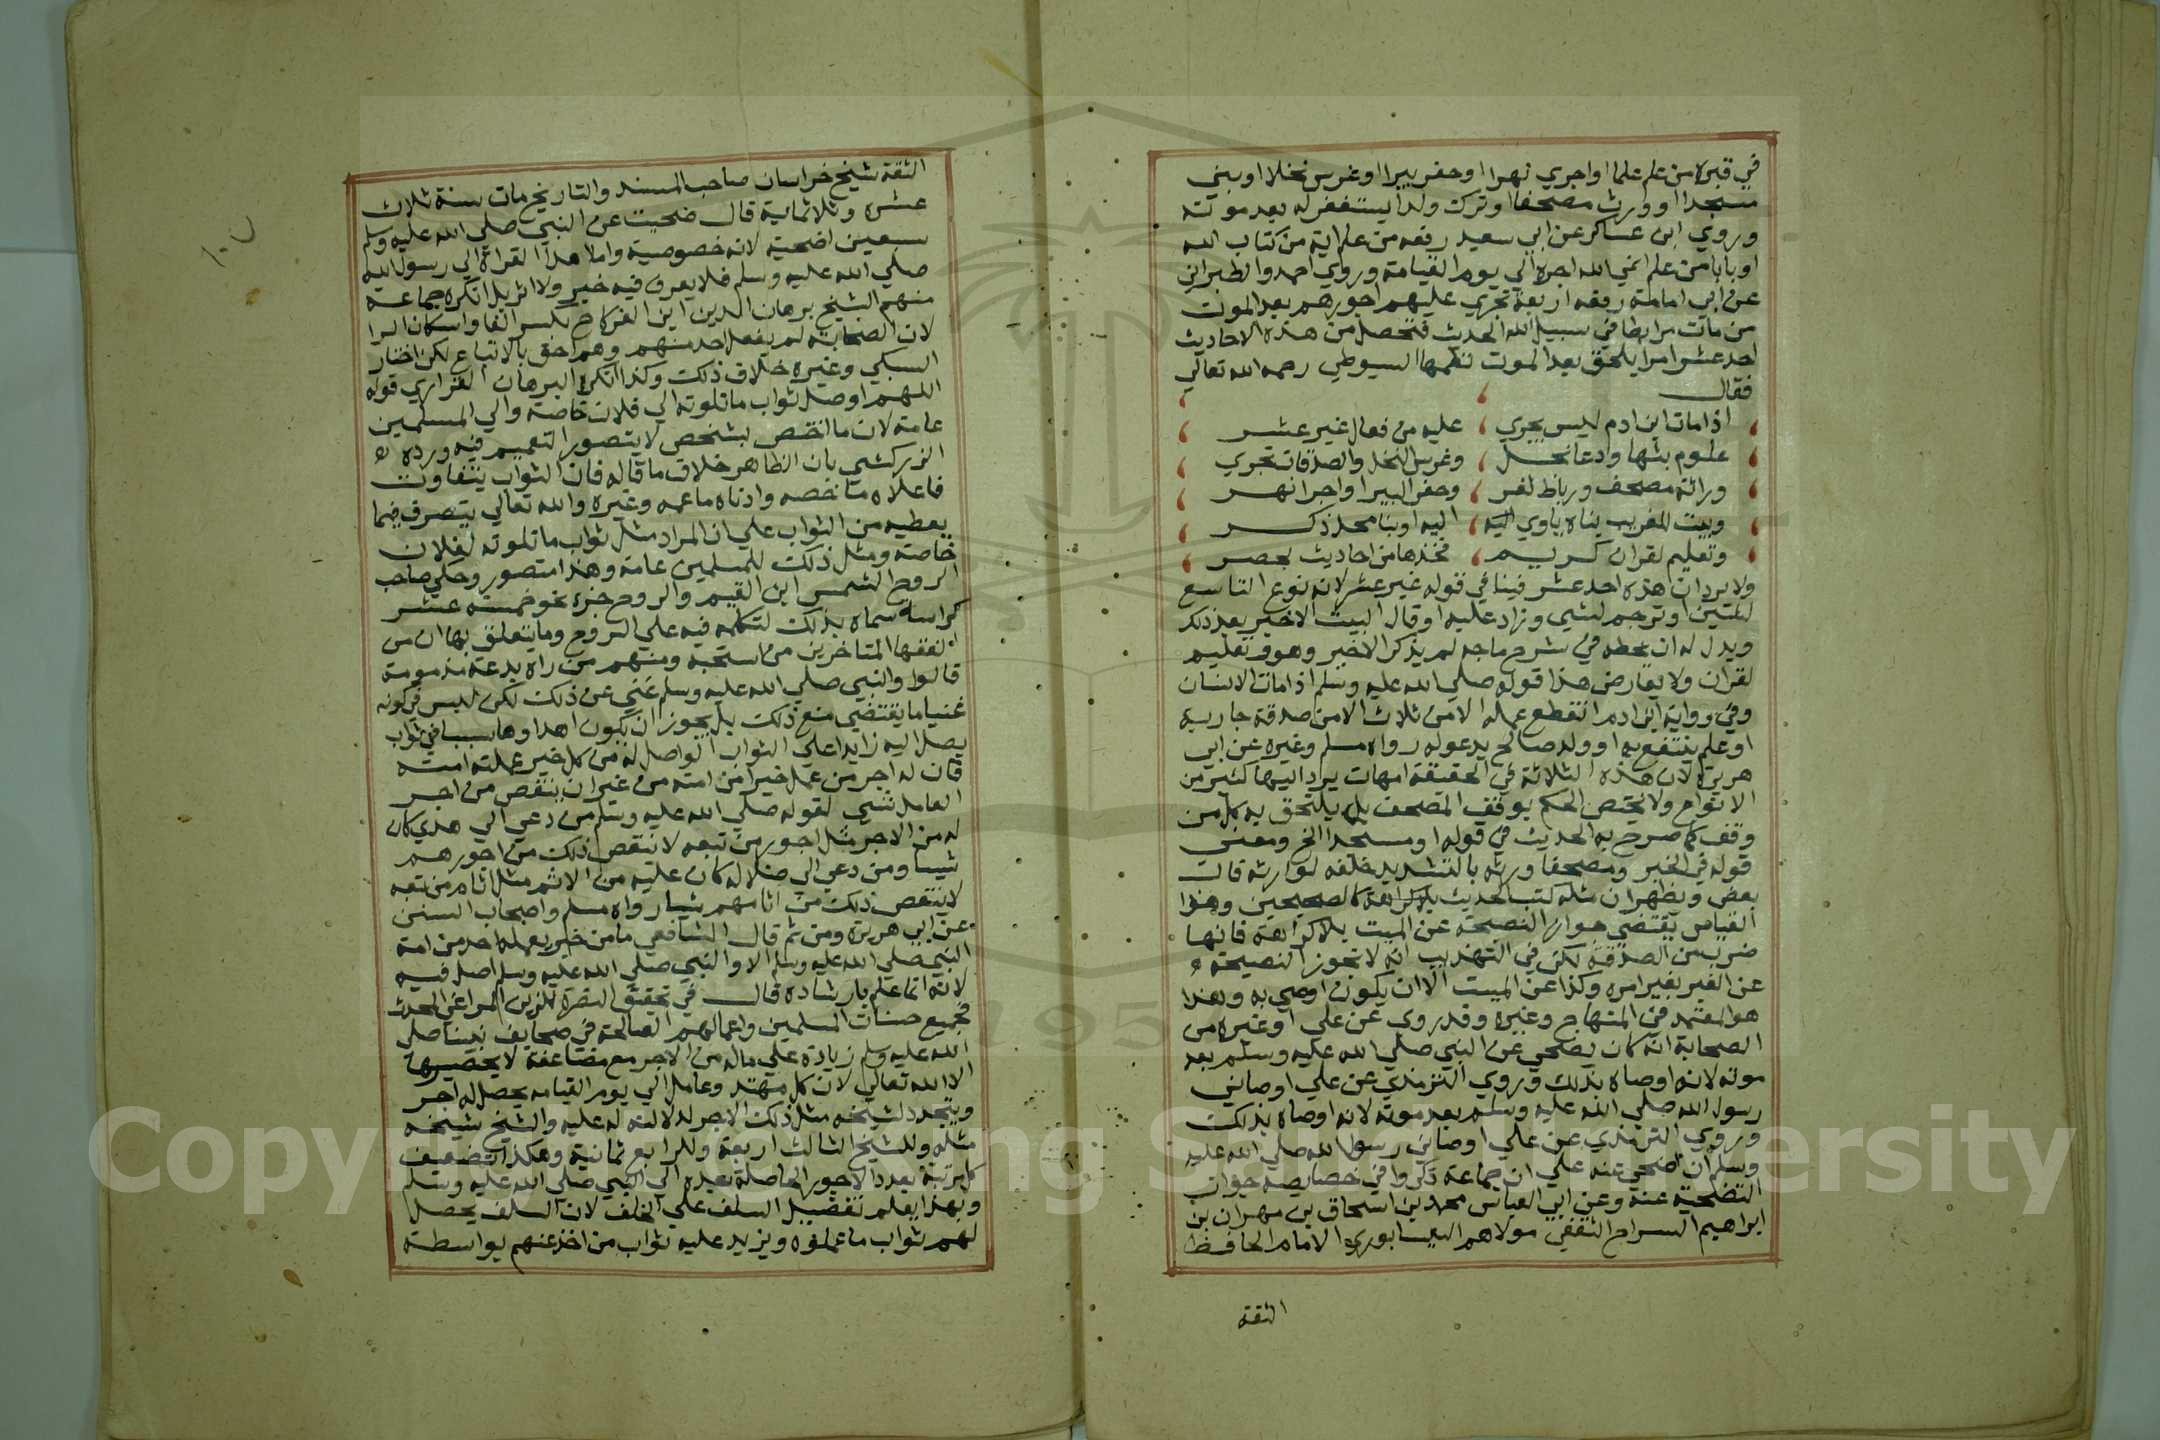 في قبره من علم علما او اجري نهرا او حفر بيرا او غرس نخلا او بني
مسجدا او ورث مصحفا او ترك ولدا يستغفر له بعد موته
وروي ابن عساكر عن ابي سعيد رفعه من علم اية من كتاب الله
او بابا من علم انمي الله اجره الي يوم القيامة وروي احمد والطبراني
عن ابي امامة رفعه اربعة تجري عليهم اجورهم بعد الموت
من مات مرابطا في سبيل الله الحديث فتحصل من هذه الاحاديث
احد عشر امرا يلحق بعد الموت نظمها السيوطي رحمه الله تعالي
فقال
اذا مات ابن ادم ليس يجري عليه من فعال غير عشر
علوم بثها ودعا نجل وغرس النخل والصدقات تجري
وراثة مصحف ورباط ثغر وحفر البير او اجرا نهر
وبيت للغريب بناه ياوي اليه اليه او بنا محل ذكر
وتعليم لقران كريم فخذها من احاديث بحصر
ولا يرد ان هذه احد عشر فينافي قوله غير عشر لانه نوع التاسع
لشيين او ترجم لشي وزاد عليه او قال البيت الاخير بعد ذلك
ويدل له ان بخطه في شرح ماجه لم يذكر الاخير وهو وتعليم
لقران ولا يعارض هذا قوله صلي الله عليه وسلم اذا مات الانسان
وفي رواية ابن ادم انقطع عمله الا من ثلاث الا من صدقة جارية
او علم ينتفع به او ولد صالح يدعو له رواه مسلم وغيره عن ابي
هريرة لان هذه الثلاثة في الحقيقة امهات يرد اليها كثير من
الانواع ولا يختص الحكم بوقف المصحف بل يلتحق به كل من
وقف كما صرح به الحديث في قوله او مسجدا الخ ومعني
قوله في الخبر ومصحفا ورثه بالتشديد خلفه لوارثه قال
بعض ويظهر ان مثله كتب الحديث كالصحيحين وهذا
القياس يقتضي جواز التضحية عن الميت بلا كراهة فانها
ضرب من الصدقة لكن في التهذيب انه لا تجوز التضحية
عن الغير بغير امره وكذا عن الميت الا ان يكون اوصي به وهذا
هو المعتمد في المنهاج وغيره وقد روي عن علي او غيره من
الصحابة انه كان يضحي عن النبي صلي الله عليه وسلم بعد
موته لانه اوصاه بذلك وروي الترمذي عن علي اوصاني
رسول الله صلي الله عليه وسلم بعد موته لانه اوصاه بذلك
وروي الترمذي عن علي اوصاني رسول الله صلي الله عليه
وسلم ان اضحي عنه علي ان جماعة ذكروا في خصايصه جواز
التضحية عنه وعن ابي العباس محمد بن اسحاق بن مهران بن
ابراهيم السراج الثقفي مولاهم النيسابوري الامام الحافظ
الثقة
الثقة شيخ خراسان صاحب المسند والتاريخ مات سنة ثلاث
عشره وثلاثماية قال ضحيت عن النبي صلي الله عليه وسلم
سبعين اضحية لانه خصوصية واما اهدا القراة الي رسول الله
صلي الله عليه وسلم فلا يعرف فيه خبر ولا اثر بل انكره جماعة
منهم الشيخ برهان الدين ابن الفركاح بكسر الفا واسكان الرا
لان الصحابة لم يفعله احد منهم وهم احق بالاتباع لكن اختار
السبكي وغيره خلاف ذلك وكذا انكر البرهان الفزاري قوله
اللهم اوصل ثواب ما تلوته الي فلان خاصة والي المسلمين
عامة لان ما اختص بشخص لا يتصور التعميم فيه ورده
الزركشي بان الظاهر خلاف ما قاله فان الثواب يتفاوت
فاعلاه ما خصه وادناه ما عمه وغيره والله تعالي يتصرف فيما
يعطيه من الثواب علي ان المراد مثل ثواب ما تلوته لفلان
خاصة ومثل ذلك للمسلمين عامة وهذا متصور وحكي صاحب
الروح الشمس ابن القيم والروح جزء نحو خمسة عشر
كراسة سماه بذلك لتكلمه فيه علي الروح وما يتعلق بها ان من
الفقها المتاخرين من استحبه ومنهم من راه بدعة مذمومة
قالوا والنبي صلي الله عليه وسلم غني عن ذلك لكن ليس في كونه
غنيا ما يقتضي منع ذلك بل يجوز ان يكون اهداوها سببا في ثواب
يصل اليه زايدا علي الثواب الواصل له من كل خير عملته امته
فان له اجر من عمل خيرا من امته من غير ان ينقص من اجر
العامل شي لقوله صلي الله عليه وسلم من دعي الي هدي كان
له من الاجر مثل اجور من تبعه لا ينقص ذلك من اجورهم
شيا ومن دعي الي ضلاله كان عليه من الاثم مثل اثام من تبعه
لا ينقص ذلك من اثامهم شيا رواه مسلم واصحاب السنن
عن ابي هريرة ومن ثم قال الشافعي ما من خير يعمله احد من امة
النبي صلي الله عليه وسلم الا والنبي صلي الله عليه وسلم اصل فيه
لانه انما علم بارشاده قال في تحقيق النصرة للزين المراغي المحدث
فجميع حسنات المسلمين واعمالهم الصالحة في صحايف نبينا صلي
الله عليه وسلم زيادة علي ماله من الاجر مع مضاعفة لا يحصيها
الا الله تعالي لان كل مهتد وعامل الي يوم القيامه يحصل له اجر
ويتجدد لشيخه مثل ذلك الاجر لدلالته له عليه ولشيخ شيخه
مثله وللشيخ الثالث اربعة وللرابع ثمانية وهكذا تضعيف
كل مرتبة بعدد الاجور الحاصلة بعده الي النبي صلي الله عليه وسلم
وبهذا يعلم تفضيل السلف علي الخلف لان السلف يحصل
لهم ثواب ما عملوه ويزيد عليه ثواب من اخذ عنهم بواسطة
Copyright © King Saud University
1957